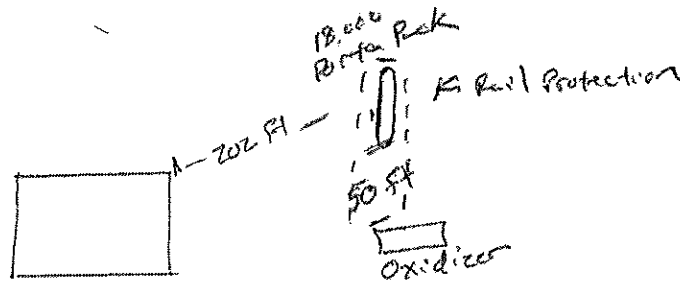 18,000
Porta Pack
Rail Protection
202 Ft
50 ft
Oxidizer